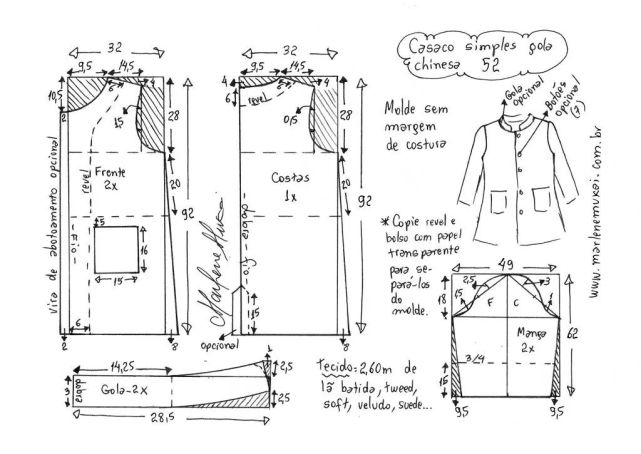 Casaco simples gola
chinesa 52
Gola
opcional
Botões
opcional
(7)
Molde sem
margem
de costura
* Copie revel e
bolso com papel
transparente
para se-
pará-los
do
molde.
www.marlenemukai.com.br
32
9,5
14,5
4
6
10,5
2
1,5
28
20
92
Frente
2x
revel
vira de abotoamento opcional
fio
5
16
15
6
2
8
32
9,5
14,5
4
4
6
6
revel
0,5
28
20
92
Costas
1x
dobra
fio
15
opcional
8
Marlene Mukai
49
2,5
3
18
1,5
1
F
C
Manga
2x
62
3/4
15
9,5
9,5
14,25
1
2,5
3
dobra
Gola-2x
2,5
28,5
Tecido: 2,60m de
lã batida, tweed,
soft, veludo, suede...